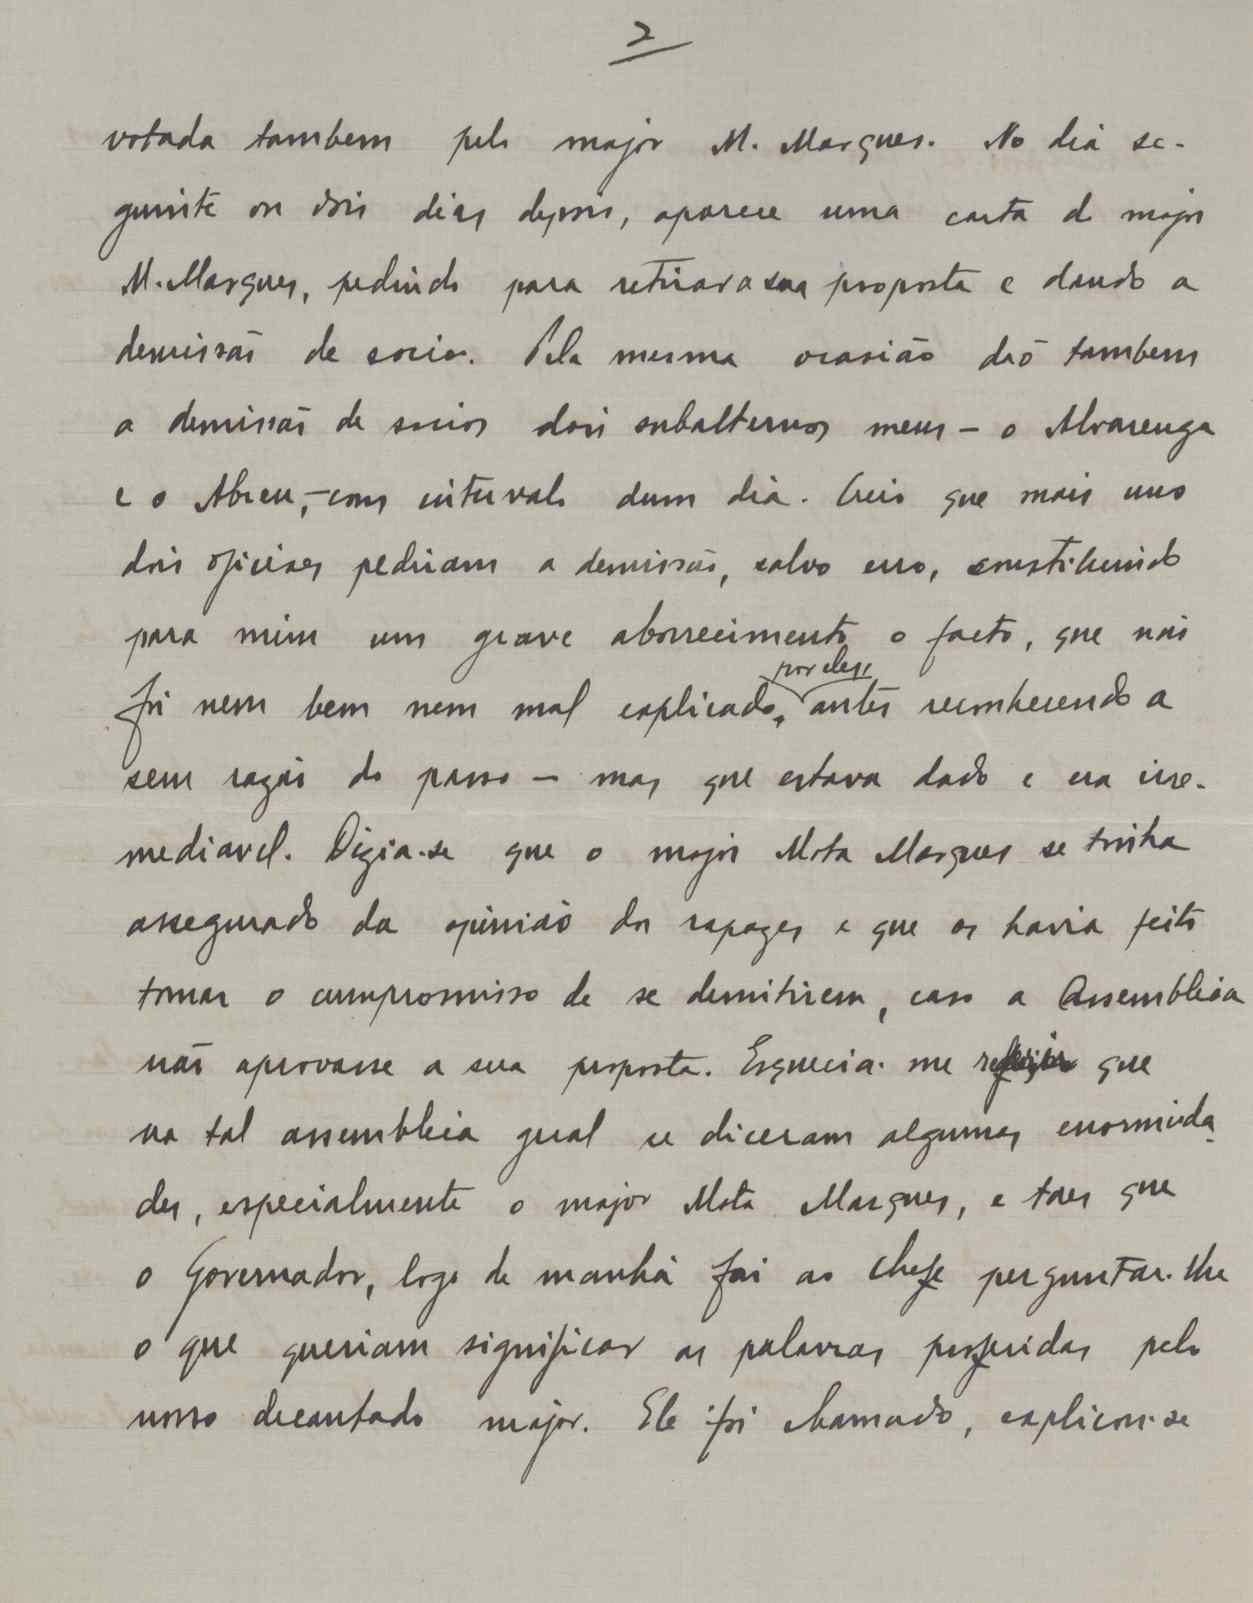 2
votada tambem pelo major M. Marques. No dia se-
guinte ou dois dias depois, aparece uma carta do major
M. Marques, pedindo para retirar a sua proposta e dando a
demissão de socio. Pela mesma ocasião deo tambem
a demissão de socios dois subalternos meus - o Alvarenga
e o Abreu, - com intervalo dum dia. Creio que mais uns
dois oficiaes pediram a demissão, salvo erro, constituindo
para mim um grave aborrecimento o facto, que não
por eles,
foi nem bem nem mal explicado, antes reconhecendo a
sem razão do passo - mas que estava dado e era irre-
mediavel. Dizia-se que o major Mota Marques se tinha
assegurado da opinião dos rapazes e que os havia feito
tomar o compromisso de se demitirem, caso a Assembleia
não aprovasse a sua proposta. Esquecia-me que
na tal assembleia geral se diceram algumas enormida-
des, especialmente o major Mota Marques, e taes que
o Governador, logo de manhã foi ao chefe perguntar-lhe
o que queriam significar as palavras proferidas pelo
nosso decantado major. Ele foi chamado, explicou-se